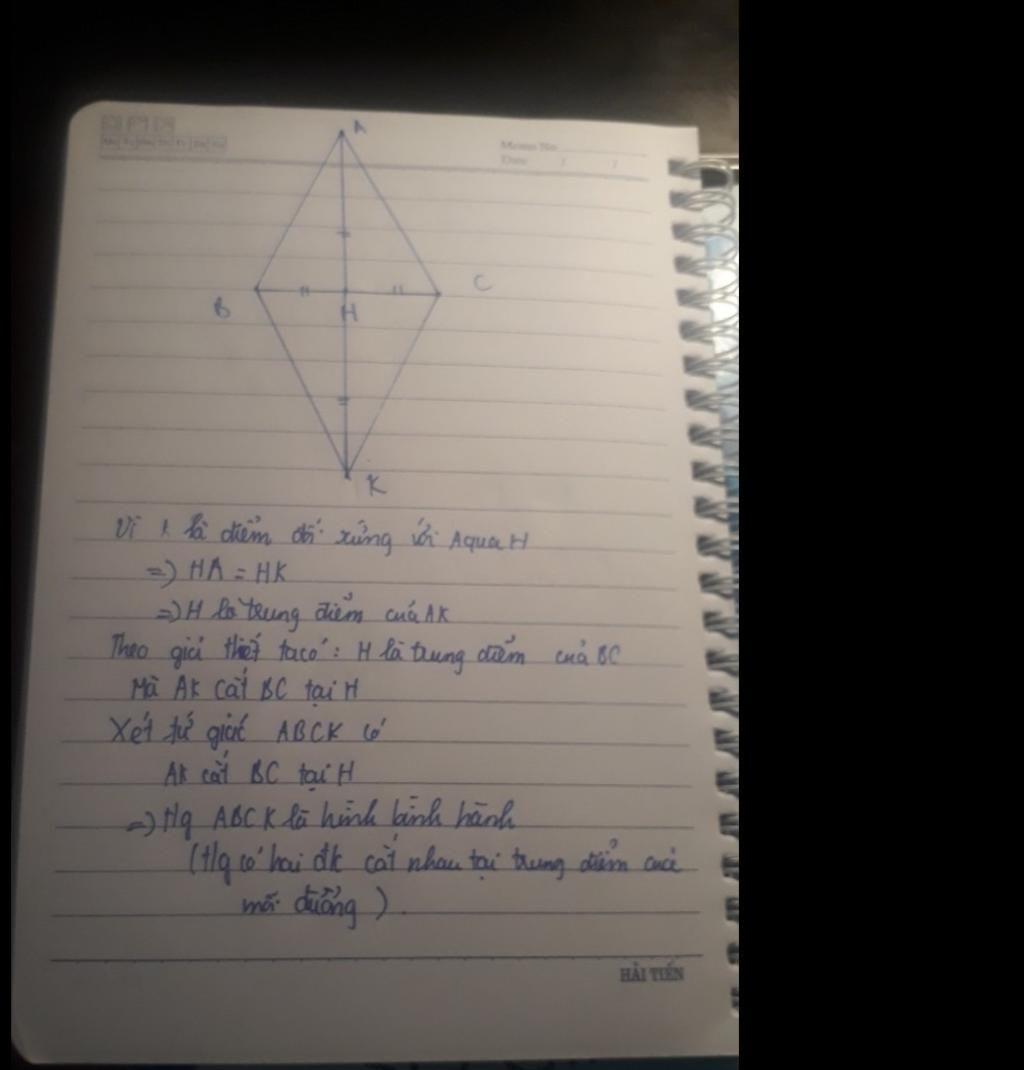 Memo No
Date / /
A
B
C
H
K
Vì K là điểm đối xứng với A qua H
=> HA = HK
=> H là trung điểm của AK
Theo giả thiết ta có : H là trung điểm của BC
Mà AK cắt BC tại H
Xét tứ giác ABCK có
AK cắt BC tại H
=> t/g ABCK là hình bình hành
(t/g có hai đk cắt nhau tại trung điểm của
mỗi đường ) .
HẢI TIẾN